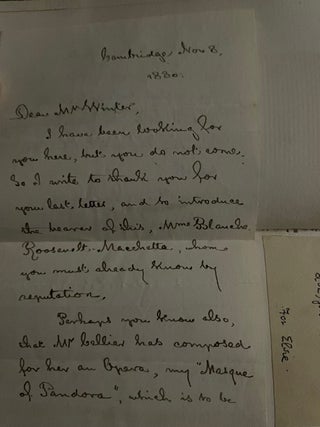 Cambridge, Nov 8,
1880.
Dear Mr Winter,
I have been looking for
you here, but you do not come.
So I write to thank you for
your last letter, and to introduce
the bearer of this, Mme Blanche
Roosevelt-Macchetta, whom
you must already know by
reputation.
Perhaps you know also,
that Mr Cellier has composed
for her an Opera, my "Masque
of Pandora", which is to be
For Elsie.